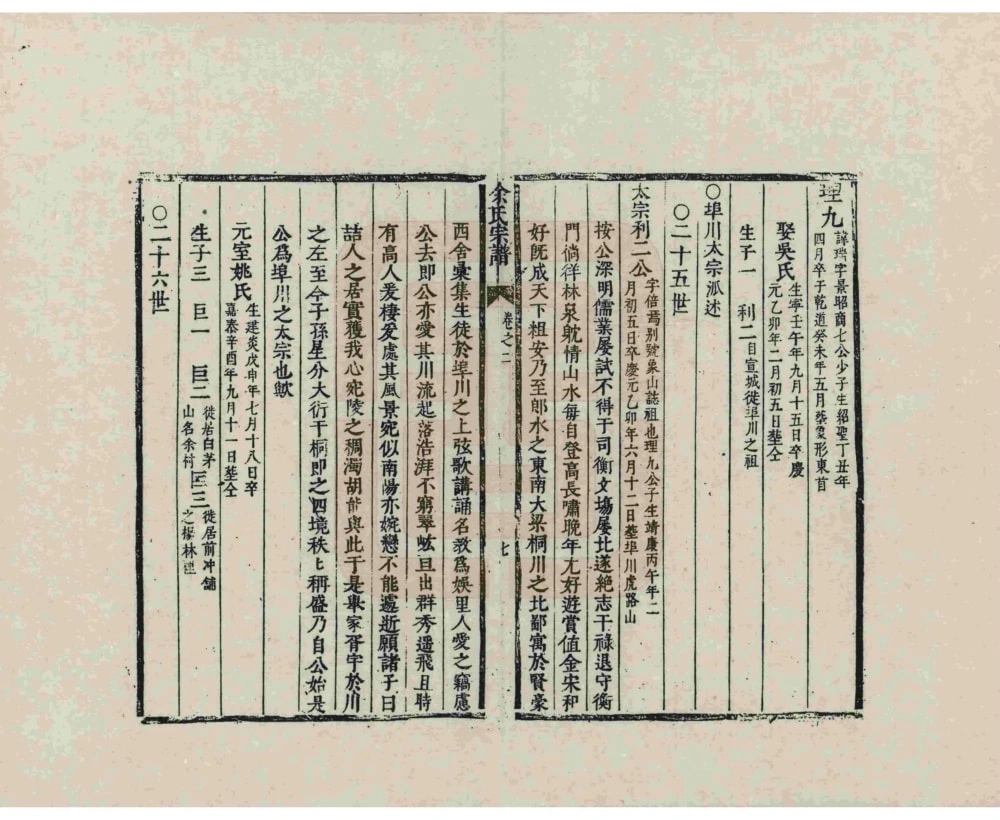 理九
諱璞字景昭商七公少子生紹聖丁丑年
四月卒于乾道癸未年五月塟象形東首
娶吳氏
生寧壬午年九月十五日卒慶
元乙卯年二月初五日塟仝
生子一　利二
自宣城徙埠川之祖
〇埠川太宗派述
〇二十五世
太宗利二公
字倍焉别號象山誌祖也理九公子生靖康丙午年二
月初五日卒慶元乙卯年六月十二日塟埠川虎路山
按公深明儒業屡試不得于司衡文塲屡比遂絶志干祿退守衡
門徜徉林泉躭情山水每自登高長嘯晚年尤好遊賞值金宋和
好旣成天下祖安乃至郎水之東南大梁桐川之比鄙寓於賢豪
余氏宗譜
卷之二
七
西舍彙集生徒於埠川之上弦歌講誦名教爲娛里人愛之竊慮
公去即公亦愛其川流起落浩湃不窮翠岉亘出群秀遥飛且時
有高人爰棲爰處其風景宛似南陽亦婉戀不能遽逝願諸子曰
詰人之居實獲我心宛陵之稠濁胡能與此于是舉家胥宇於川
之左至今子孫星分大衍干桐即之四境秩匕稱盛乃自公始是
公爲埠川之太宗也歟
元室姚氏
生建炎戊申年七月十八日卒
嘉泰辛酉年九月十一日塟仝
生子三　巨一　巨二
徙居白茅
山名余村
巨三
徙居前冲舖
之楊林
〇二十六世